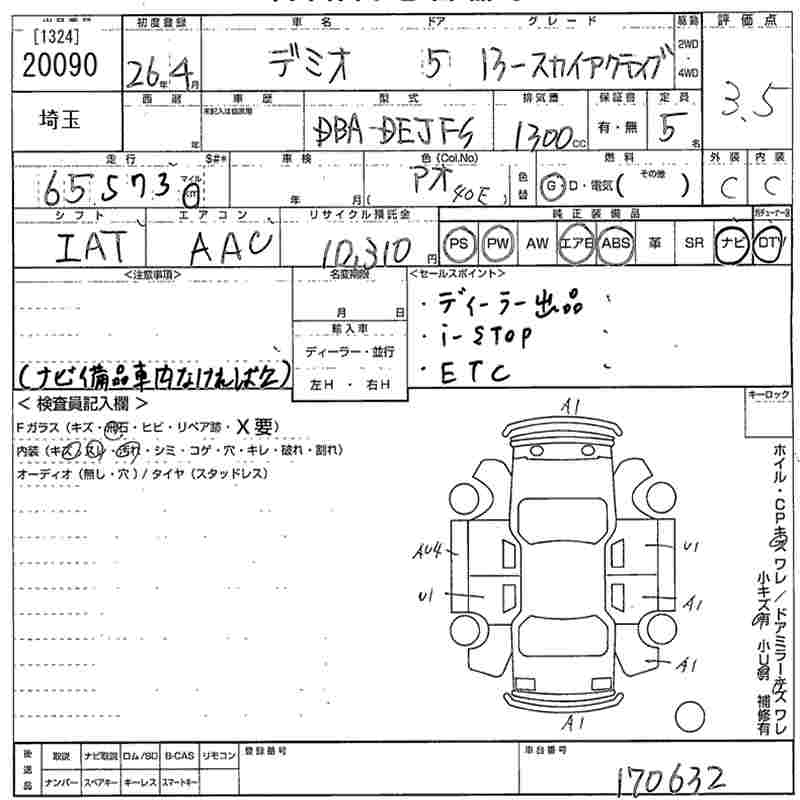 出品番号 初度登録 車名 ドア グレード 駆動 評価点
[1324]
20090 26年4月 デミオ 5 13-スカイアクティブ 2WD 4WD 3.5
埼玉 西暦 年 車歴 未記入は自家用 型式 排気量 保証書 定員
DBA-DEJFS 1300cc 有・無 5名
走行 S#* 車検 色(Col.No) 燃料 外装 内装
65573 マイル Km 年 月 アオ (40E) 色替 G・D・電気( その他 ) C C
シフト エアコン リサイクル預託金 純正装備品
IAT AAC 10,310円 PS PW AW エアB ABS 革 SR ナビ DTV
<注意事項> 名変期限 <セールスポイント>
月 日 ・ディーラー出品
輸入車 ・i-STOP
ディーラー・並行 ・ETC
(ナビ備品車内なければ欠) 左H・右H
<検査員記入欄> キーロック
Fガラス(キズ・飛石・ヒビ・リペア跡・X要)
内装(キズ・スレ・汚れ・シミ・コゲ・穴・キレ・破れ・割れ)
オーディオ(無し・穴)/タイヤ(スタッドレス)
A1
AU4 U1
U1 A1
A1
A1
ホイル・CPキズ ワレ/ドアミラーキズ ワレ
小キズ有 小U有 補修有
後送品 取説 ナビ取説 ロム/SD B-CAS リモコン 登録番号 車台番号
ナンバー スペアキー キーレス スマートキー 170632